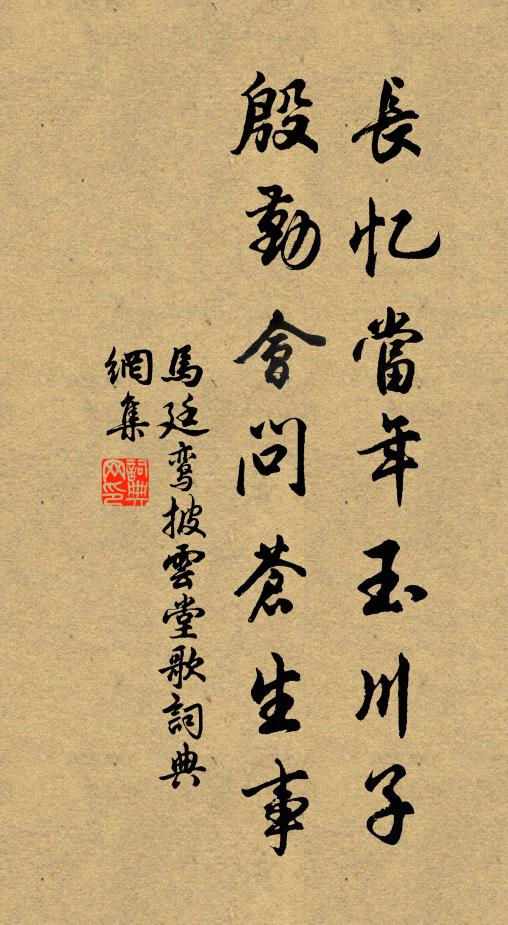 長忆當年玉川子
殷勤會問蒼生事
馬廷鸾披雲堂歌詞典
網集
詞典網印